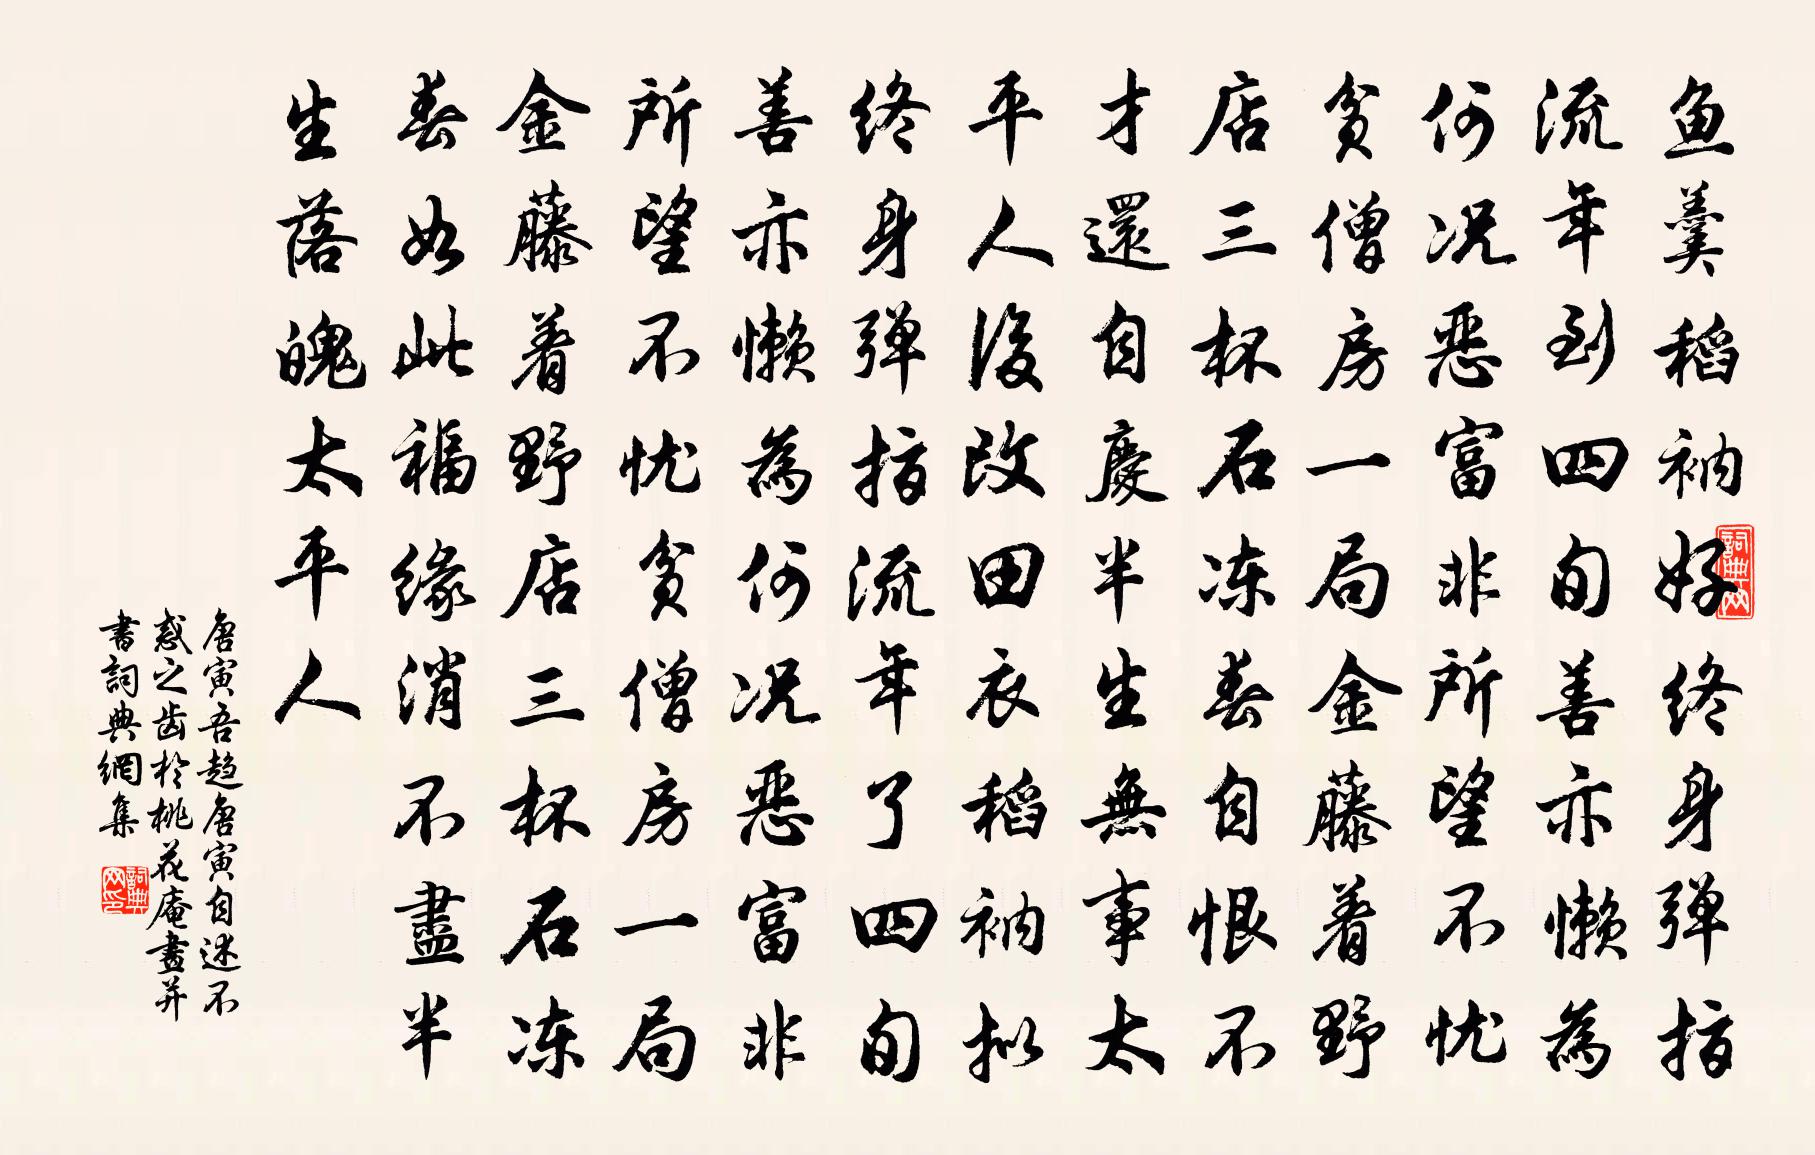 鱼羹稻衲好终身弹指
流年到四旬善亦懒為
何况恶富非所望不忧
贫僧房一局金藤着野
店三杯石冻春自恨不
才還自慶半生無事太
平人後改田衣稻衲拟
终身弹指流年了四旬
善亦懒為何况恶富非
所望不忧贫僧房一局
金藤着野店三杯石冻
春如此福缘消不盡半
生落魄太平人
唐寅吾趋唐寅自述不
惑之齿於桃花庵畫并
書詞典網集
詞典网
詞典网印